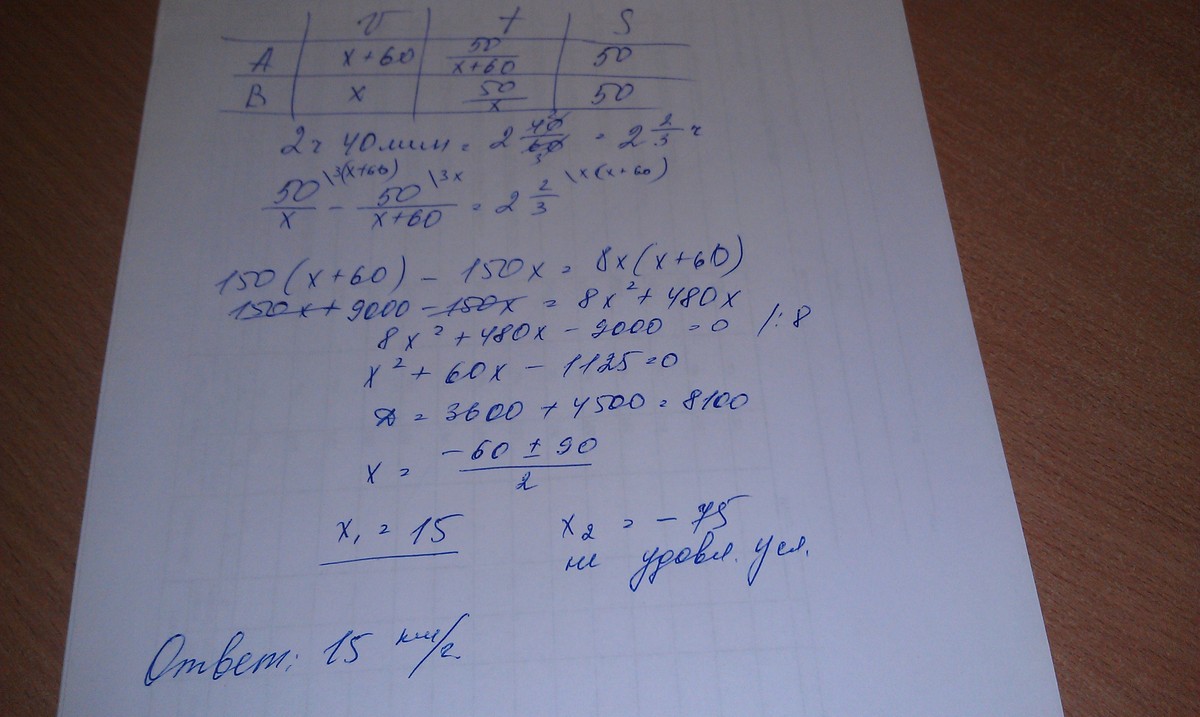 v t S
A x+60 50/(x+60) 50
B x 50/x 50
2ч 40мин = 2 40/60 = 2 2/3 ч
50/x \3(x+60) - 50/(x+60) \3x = 2 2/3 \x(x+60)
150(x+60) - 150x = 8x(x+60)
150x + 9000 - 150x = 8x² + 480x
8x² + 480x - 9000 = 0 /:8
x² + 60x - 1125 = 0
D = 3600 + 4500 = 8100
x = (-60 ± 90)/2
x₁ = 15 x₂ = -75
не удовл. усл.
Ответ: 15 км/ч.